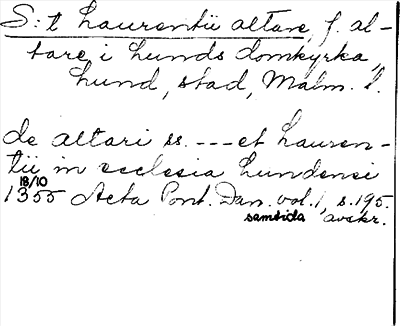 S:t Laurentii altare, f. al-
tare i Lunds domkyrka,
Lund, stad, Malm. l.
de altari ss. --- et Lauren-
tii in ecclesia Lundensi
18/10
1355 Acta Pont. Dan. vol. 1, s. 195.
samtida avskr.